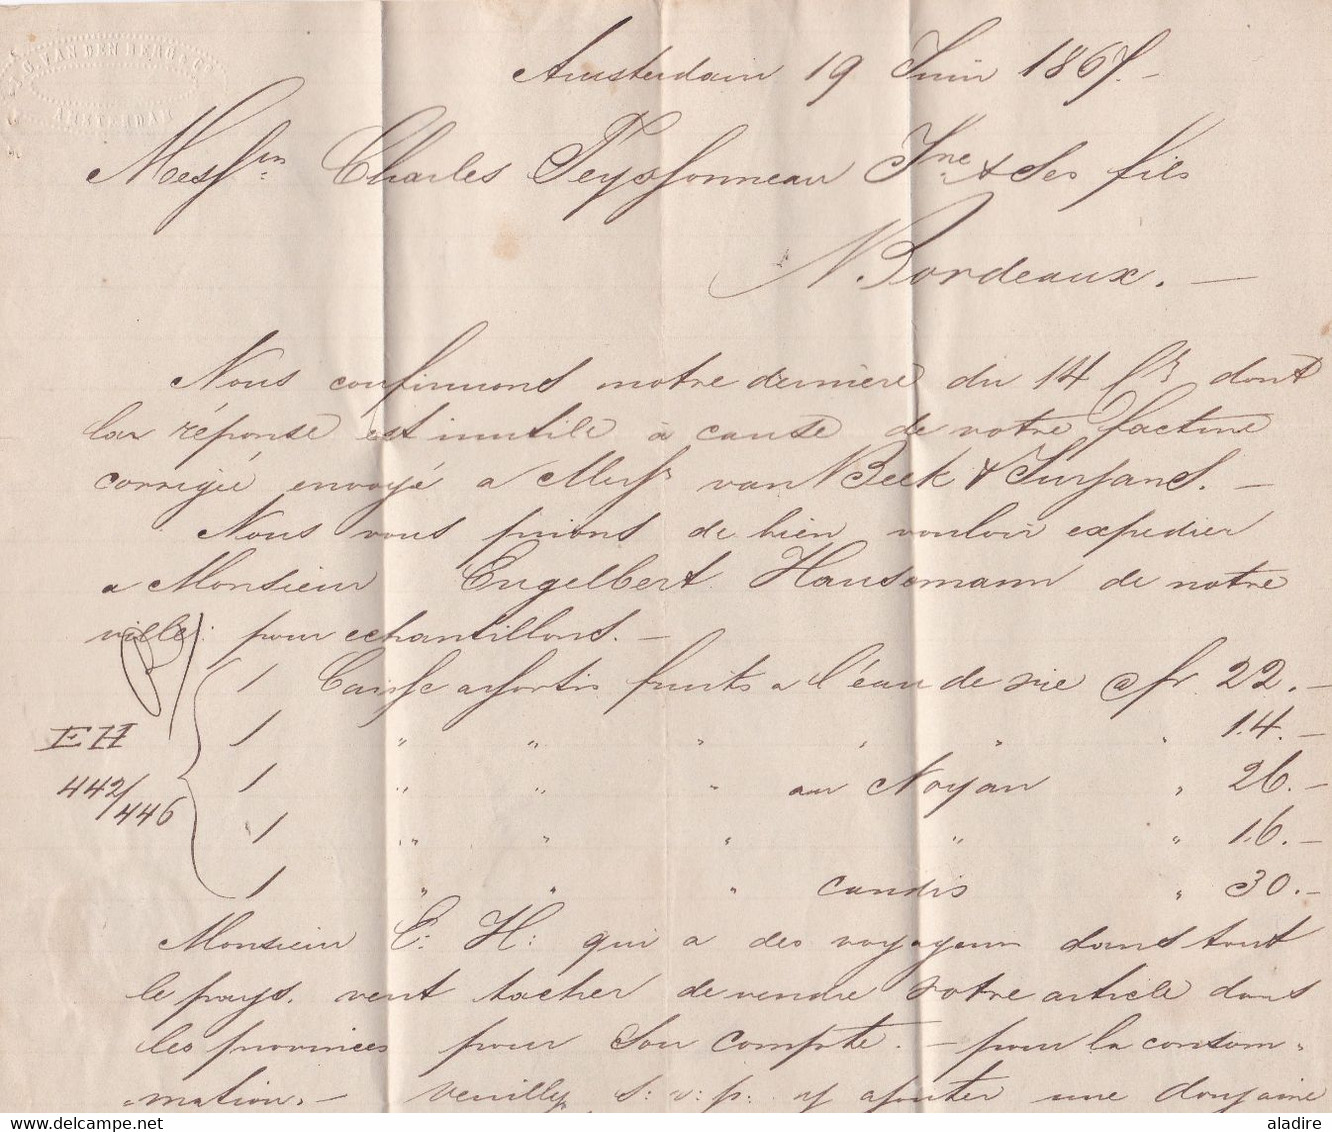 J. O. VAN DEN BERG & Co
AMSTERDAM
Amsterdam 19 Juin 1867.-
Messrs. Charles Teyssonneau Jne & ses fils
Bordeaux.-
Nous confirmons notre dernière du 14 Ct dont
la réponse est inutile à cause de votre facture
corrigée envoyé a Messrs van Beek & Jurjans.-
Nous vous prions de bien vouloir expedier
a Monsieur Engelbert Hausemann de notre
ville: pour echantillons.-
1 Caisse assortis fruits a l'eau de vie @ fr 22.-
EH 1 " " " " " " 14.-
442/446 1 " " " au Noyau " 26.-
1 " " " " " 16.-
1 " " " candis " 30.-
Monsieur E: H: qui a des voyageurs dans tout
le pays. veut tacher de vendre votre article dans
les provinces pour son compte.- pour la consom-
-mation.- veuillez s: v: p: y ajouter une douzaine
aladire